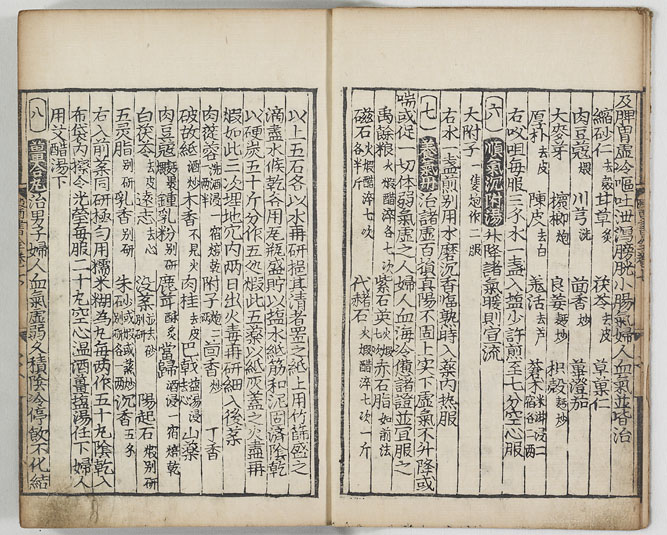 及脾胃虛冷嘔吐泄瀉膀胱小腸氣婦人血氣並皆治
縮砂仁去殼 甘草炙 茯苓去皮 草菓仁
肉豆蔻煨 川芎洗 茴香炒 蓽澄茄
大麥芽炒 檳榔炮 良薑麩炒 枳殼麩炒
厚朴去皮 陳皮去白 羗活去芦 蒼朮米泔浸二宿各二両
右㕮咀每服三孑水一盞入塩少許煎至七分空心服
六 順氣沉附湯 升降諸氣暖則宣流
大附子一隻炮作二服
右水一盞煎別用水磨沉香臨熟時入薬内热服
七 養氣丹 治諸虛百損真陽不固上实下虛氣不升降或
喘或促一切体弱氣虛之人婦人血海冷憊諸證並宜服之
禹餘粮火煅醋淬各七次 紫石英火煅醋淬七次 赤石脂如前法
磁石火煅醋淬七次各半斤 代赭石火煅醋淬七次一斤
以上五石各以水再研挹其清者置之紙上用竹篩盛之
滴盡水候乾各用瓦瓶盛貯以塩水紙筋和泥固済陰乾
以硬炭五十斤分作五処煅此五薬以紙灰蓋之火盡再
煅如此三次埋地穴内两日出火毒再研細入後薬
肉蓯蓉洗酒浸一宿焙乾一両半 附子炮二両 茴香炒 丁香
破故紙酒炒 木香不見火 肉桂去皮 巴戟塩湯浸去心 山薬
肉豆蔻麪裹煨 鍾乳粉別研 鹿茸酥炙 當歸酒浸一宿焙乾
白茯苓去皮 遠志去心 没薬 陽起石煅別研
五灵脂別研 乳香別研 朱砂 沉香
右入前薬同研極勻用糯米糊為丸每两作五十丸陰乾入
布袋内擦令光瑩每服二十丸空心温酒薑塩湯任下婦人
用艾醋湯下
八 合丸 治男子婦人血氣虛弱久積陰冷停飲不化結